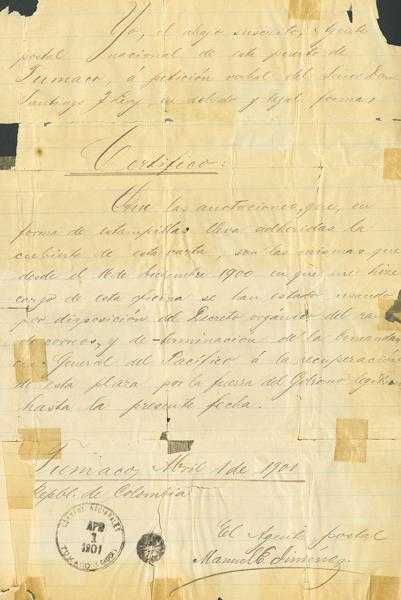 Yo, el abajo suscrito, Agente
postal nacional de este puerto de
Tumaco, á petición verbal del Señor Don
Santiago F. Levy, en debido y legal forma,
Certifico:
Que las anotaciones, que, en
forma de estampillas lleva adheridas la
cubierta de esta carta, son las mismas que
desde el 16 de diciembre 1900 en que me hice
cargo de esta oficina se han estado usando
por disposición del Decreto orgánico del ra-
mo de correos, y determinación de la Comandan
cia General del Pacífico á la recuperación
de esta plaza por la fuerza del Gobierno legítimo
hasta la presente fecha.
Tumaco, Abril 1 de 1901
Repbl. de Colombia
CORREOS NACIONALES
APR
1
1901
TUMACO
El Agente postal
Manuel E. Jiménez